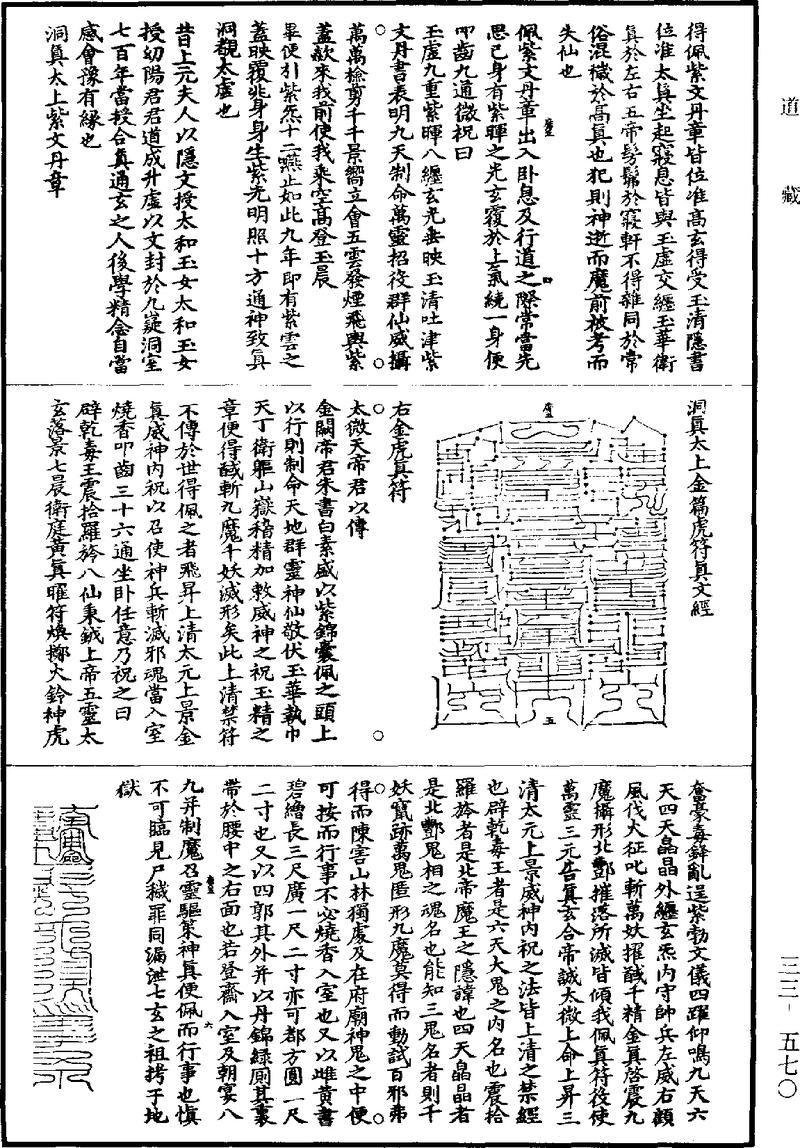 道藏
得佩紫文丹章皆位准高玄得受玉清隱書
位准太真坐起寢息皆與玉虛交纏玉華衛
真於左右五帝髣髴於寢軒不得雜同於常
俗混穢於高真也犯則神逝而魔前被考而
失仙也
佩紫文丹章出入卧息及行道之際常當先
思己身有紫暉之光玄覆於上氣繞一身便
叩齒九通微祝曰
玉虛九重紫暉八纏玄光垂映玉清吐津紫
文丹書表明九天制命萬靈招役群仙威攝
萬萬檢剪千千景嚮立會五雲發煙飛輿紫
蓋歘來我前使我乘空高登玉晨
畢便引紫炁十二嚥止如此九年即有紫雲之
蓋映覆兆身身生紫光明照十方通神致真
洞觀太虛也
昔上元夫人以隱文授太和玉女太和玉女
授幼陽君君道成升虛以文封於九嶷洞室
七百年當授合真通玄之人後學精念自當
感會豫有緣也
洞真太上紫文丹章
洞真太上金篇虎符真文經
右金虎真符
太微天帝君以傳
金闕帝君朱書白素盛以紫錦囊佩之頭上
以行則制命天地群靈神仙敬伏玉華執巾
天丁衛軀山嶽稽精加敕威神之祝玉精之
章便得馘斬九魔千妖滅形矣此上清禁符
不傳於世得佩之者飛昇上清太元上景金
真威神內祝以召使神兵斬滅邪魂當入室
燒香叩齒三十六通坐卧任意乃祝之曰
辟乾毒王震拾羅斾八仙秉鉞上帝五靈太
玄落景七晨衛庭黃真曜符煥擲火鈴神虎
奮豪毒鋒亂逞紫勃文儀四躍仰鳴九天六
天四天晶晶外纏玄炁內守帥兵左威右顧
風伐火征叱斬萬妖擢馘千精金真啓震九
魔攝形北酆摧落所滅皆傾我佩真符役使
萬靈三元告真玄合帝誠太微上命上昇三
清太元上景威神內祝之法皆上清之禁經
也辟乾毒王者是六天大鬼之內名也震拾
羅斾者是北帝魔王之隱諱也四天晶晶者
是北酆鬼相之魂名也能知三鬼名者則千
妖竄跡萬鬼匿形九魔莫得而動試百邪弗
得而陳害山林獨處及在府廟神鬼之中便
可按而行事不必燒香入室也又以雌黃書
碧繒長三尺廣一尺二寸亦可都方圓一尺
二寸也又以四郭其外并以丹錦緣廁其裏
帶於腰中之右面也若登齋入室及朝宴八
九并制魔召靈驅策神真便佩而行事也慎
不可臨見尸穢罪同漏泄七玄之祖拷于地
獄
三三－五七〇